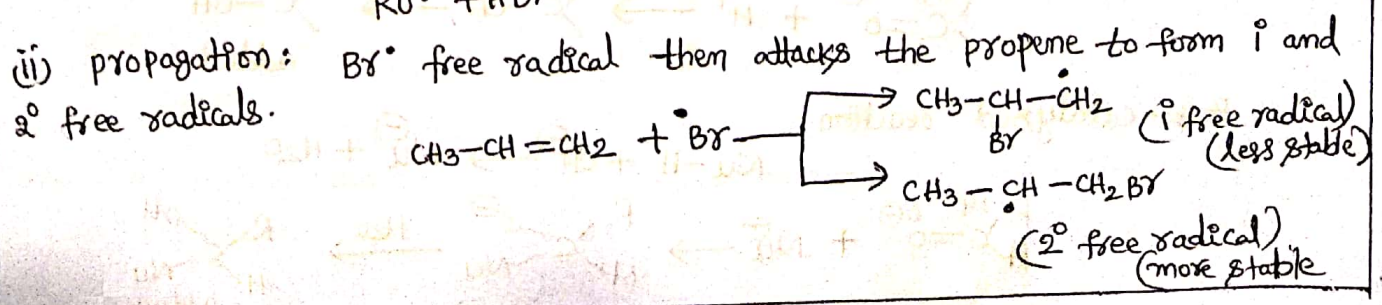 ii) propagation: Br• free radical then attacks the propene to form 1° and
2° free radicals.
CH3-CH=CH2 + •Br
CH3-CH-ĊH2
Br
(1° free radical)
(less stable)
CH3-ĊH-CH2Br
(2° free radical)
(more stable